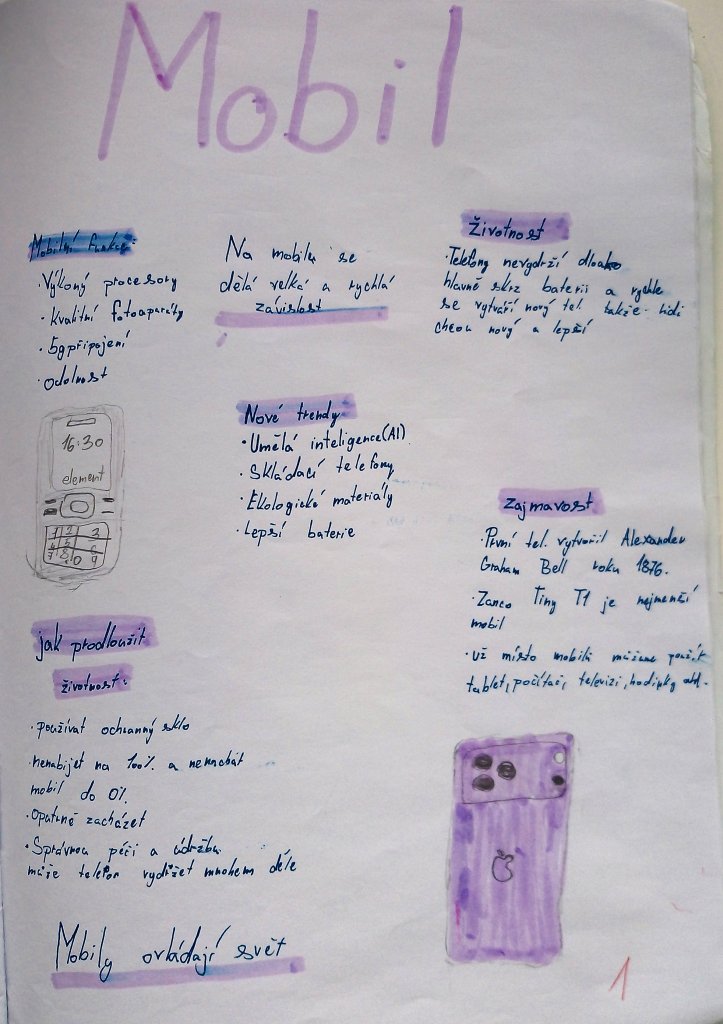 Mobil
Mobilní funkce:
· Výkoný procesory
· kvalitní fotoaparáty
· 5g připojení
· odolnost
16:30
element
1 2 3
Na mobilu se
dělá velká a rychlá
závislost
Životnost
· Telefony nevydrží dlouho
hlavně skrz baterii a rychle
se vytváří nový tel. takže lidi
chcou nový a lepší
Nové trendy
· Umělá inteligence (AI)
· Skládací telefony
· Ekologické materiály
· Lepší baterie
Zajmavost
· První tel. vytvořil Alexander
Graham Bell roku 1876.
· Zanco Tiny T1 je nejmenší
mobil
· už místo mobilů můžeme použít
tablet, počítač, televizi, hodinky atd.
jak prodloužit
životnost:
· používat ochranný sklo
· nenabíjet na 100% a nenechat
mobil do 0%
· Opatrně zacházet
· Správnou péčí a údržbu
může telefon vydržet mnohem déle
Mobily ovládají svět
1